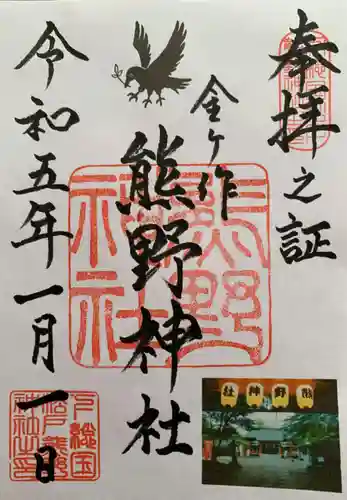 奉拝之証
金ケ作
熊野神社
令和五年一月一日
熊野神社
下総国
神社熊野